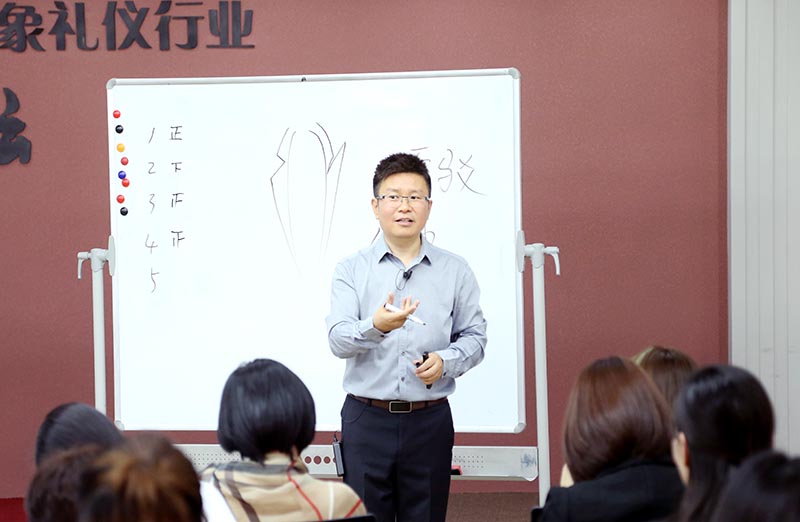 象礼仪行业
1 正
2 下
3 正
4 正
5
驳